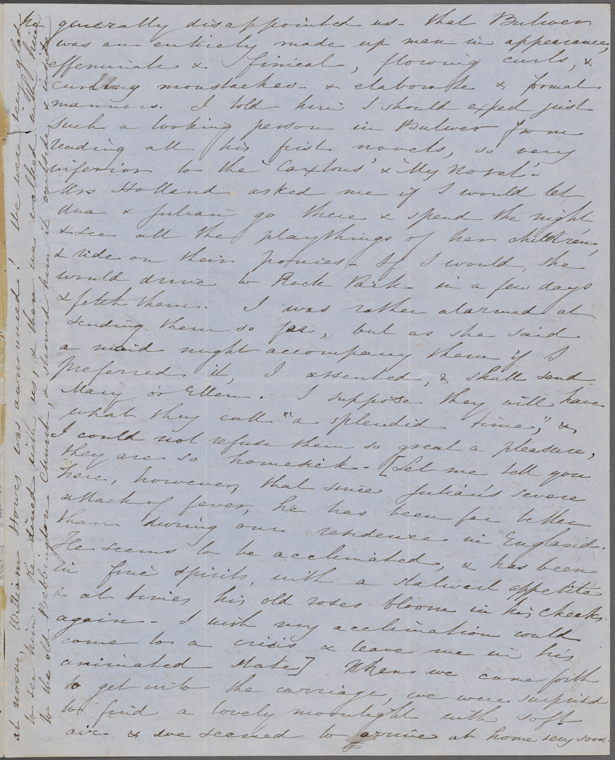 generally disappointed us - that Bulwer
was an entirely made up man in appearance
effeminate & finical, flowing curls, &
curling moustaches - & elaborate & formal
manners. I told him I should expect just
such a looking person in Bulwer from
reading all his first novels, so very
inferior to the "Caxtons" & "My Novel".
Mrs Holland asked me if I would let
Una & Julian go there & spend the night
& see all the playthings of her children,
& ride on their ponies. If I would, she
would drive to Rock Park in a few days
& fetch them. I was rather alarmed at
sending them so far, but as she said
a maid might accompany them if I
preferred it, I assented, & shall send
Mary or Ellen. I suppose they will have
what they call "a splendid time," &
I could not refuse them so great a pleasure,
they are so homesick. [Let me tell you
here, however, that since Julian's severe
attack of fever he has been far better
than during our residence in England.
He seems to be acclimated, & has been
in fine spirits, with a stalwart appetite
& at times his old roses bloom in his cheeks
again - I wish my acclimation would
come to a crisis & leave me in his
animated state] When we came forth
to get into the carriage, we were surprised
to find a lovely moonlight with soft
air & we seemed to arrive at home very soon.
at noon, William Howes was announced! We were very glad
to see him. He dined with us, & then we walked with him
to the old Bebbington Church, & showed him it